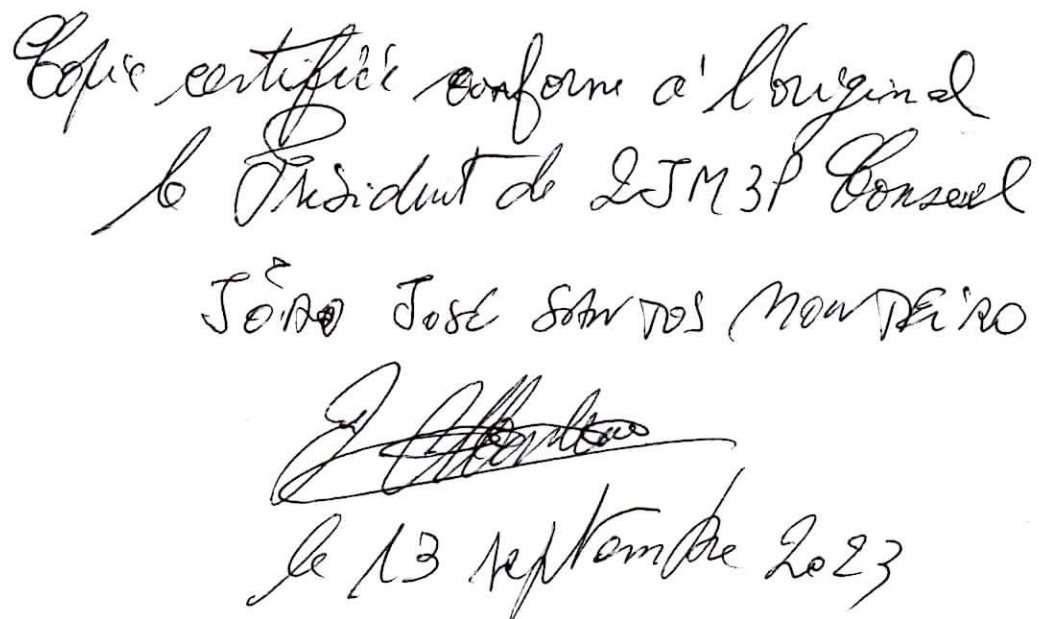 Copie certifiée conforme à l'original
le Président de 2JM3P Conseil
João José SANTOS MONTEIRO
le 13 septembre 2023